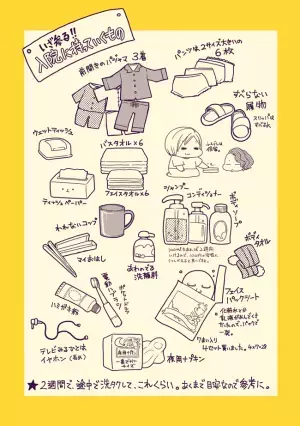 いざ参る!!
入院に持っていくもの
前開きのパジャマ 3着
パンツは2サイズ大きいの
6枚
すべらない
履物
スリッパは
すべるよ
ウェットティッシュ
バスタオル×6
フェイスタオル×6
ティッシュペーパー
シャンプー
コンディショナー
ボディソープ
われないコップ
マイおはし
あわのでる
洗顔剤
ボディ
タオル
電動ハブラシ
ハミガキ粉
フェイス
パックシート
化粧水とか
7枚入り
テレビみるひとは
イヤホン
夜用ナプキン
★2週間で、途中で洗タクして、これくらい。あくまで目安なので参考に。